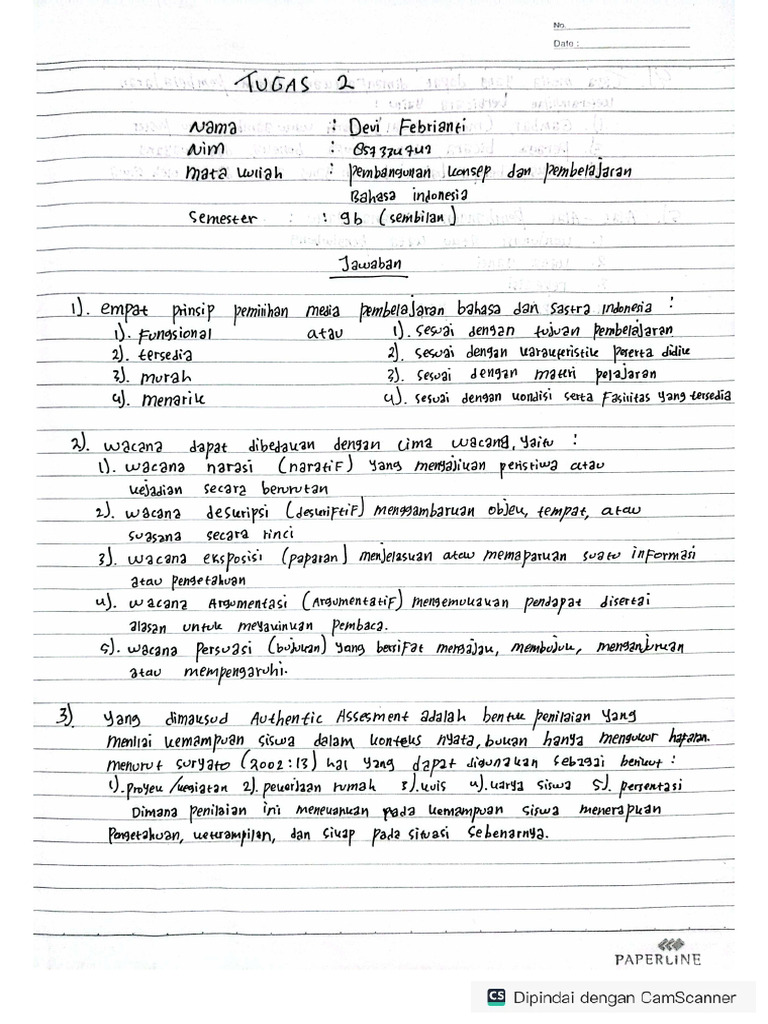 No.
Date :
TUGAS 2
Nama : Devi Febrianti
Nim : 857334742
Mata kuliah : pembangunan konsep dan pembelajaran
Bahasa indonesia
Semester : 9b (sembilan)
Jawaban
1). empat prinsip pemilihan media pembelajaran bahasa dan sastra indonesia :
1). Fungsional atau 1). sesuai dengan tujuan pembelajaran
2). tersedia 2). sesuai dengan karakteristik peserta didik
3). murah 3). sesuai dengan materi pelajaran
4). menarik 4). sesuai dengan kondisi serta Fasilitas yang tersedia
2). wacana dapat dibedakan dengan lima wacana, yaitu :
1). wacana narasi (naratif) yang menyajikan peristiwa atau
kejadian secara berurutan
2). wacana deskripsi (deskriptif) menggambarkan objek, tempat, atau
suasana secara rinci
3). wacana eksposisi (paparan) menjelaskan atau memaparkan suato informasi
atau pengetahuan
4). wacana Argumentasi (Argumentatif) mengemukakan pendapat disertai
alasan untuk meyakinkan pembaca.
5). wacana persuasi (bujukan) yang bersifat mengajak, membujuk, menganjurkan
atau mempengaruhi.
3) yang dimaksud Authentic Assesment adalah bentuk penilaian yang
menilai kemampuan siswa dalam konteks nyata, bukan hanya mengukur hafalan.
menurut suryato (2002:13) hal yang dapat digunakan sebagai berikut :
1).proyek/kegiatan 2). pekerjaan rumah 3).kuis 4).karya siswa 5). persentasi
Dimana penilaian ini menekankan pada kemampuan siswa menerapkan
Pengetahuan, keterampilan, dan sikap pada situasi sebenarnya.
PAPERLINE
CS Dipindai dengan CamScanner